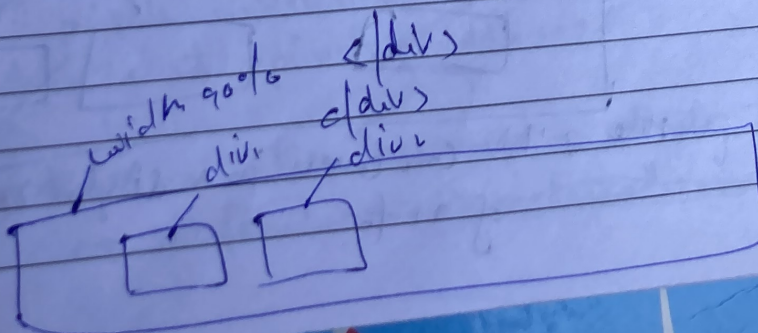 </div>
width 90%
</div>
div1
div2